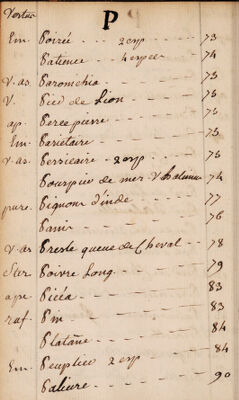 Vertus
P
Em. Poirée -- 2 esp 73
Patience -- 4 espec 74
v. as. Paronichia 75
V. Pied de Lion 75
ap. Perce pierre 75
Em. Parietaire 75
v. as. Persicaire -- 2 esp 75
Pourpier de mer V halimus 74
purg. Pignon d'inde 77
Panis 76
v. as. Preste queue de Cheval 78
Ster. Poivre Long 79
ape. Picéa 83
raf. Pin 83
Platane 84
Em. Peuplier 2 esp 84
Paliure 90